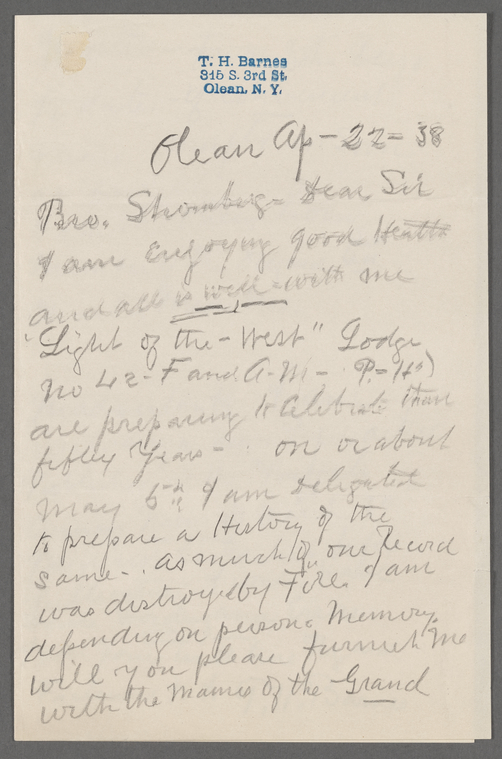 T. H. Barnes
315 S. 3rd St.
Olean, N. Y.
Olean Ap - 22 = 38
Bro. Dear Sir
I am Enjoying good Health
and all is well - with me
"Light of the - West" Lodge
No 42 - F and A - M - P. = H")
are preparing to Celebrate
fifty Years - on or about
May 5th I am Delegated
to prepare a History of the
same - . as much of our record
was distroyed by Fire. I am
depending on person. Memory.
will you please furnish Me
with the Name of the Grand